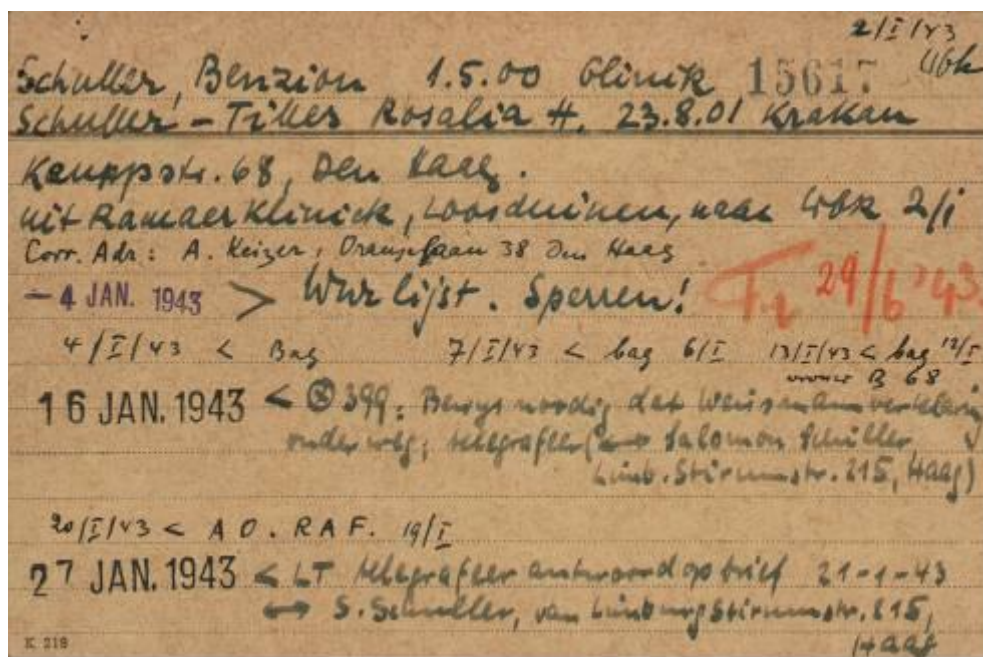 2/I/43
Schuller, Benzion 1.5.00 Glinik 15617 Wbk
Schuller - Tilles Rosalia H. 23.8.01 Krakau
Kauppstr. 68, Den Haag.
uit Ramaer Klinick, Loosduinen, naar Wbk 2/I
Corr. Adr: A. Keizer, Oranjelaan 38 Den Haag
- 4 JAN. 1943 > Wwr lijst. Sperren! T.z 29/6 '43
4/I/43 < Bag 7/I/43 < bag 6/I 13/I/43 < bag 12/I
B 68
16 JAN. 1943 < 399: Bewys noodig dat Weismann verklaring
onderweg; telegrafeer (↔ Salomon Schuller
Limb. Stirumstr. 215, Haag)
20/I/43 < A O. RAF. 19/I
27 JAN. 1943 < LT telegrafeer antwoord op brief 21-1-43
↔ S. Schuller, van Limburg Stirumstr. 215,
Haag
K. 218